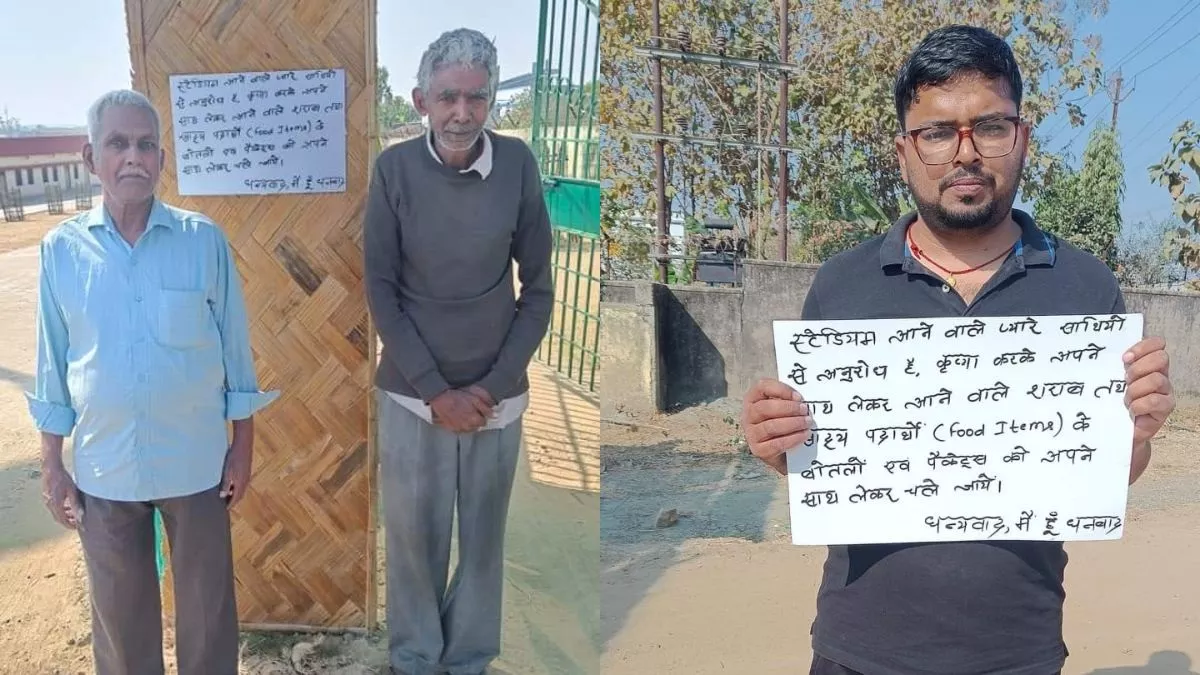 स्टेडियम आने वाले प्यारे साथियों
से अनुरोध है, कृप्या करके अपने
साथ लेकर आने वाले शराब तथा
खाद्य पदार्थों (food Items) के
बोतलों एवं पैकेट्स को अपने
साथ लेकर चले जायें।
धन्यवाद, मैं हूँ धनबाद
स्टेडियम आने वाले प्यारे साथियों
से अनुरोध है, कृप्या करके अपने
साथ लेकर आने वाले शराब तथा
खाद्य पदार्थों (food Items) के
बोतलों एवं पैकेट्स को अपने
साथ लेकर चले जायें।
धन्यवाद, मैं हूँ धनबाद